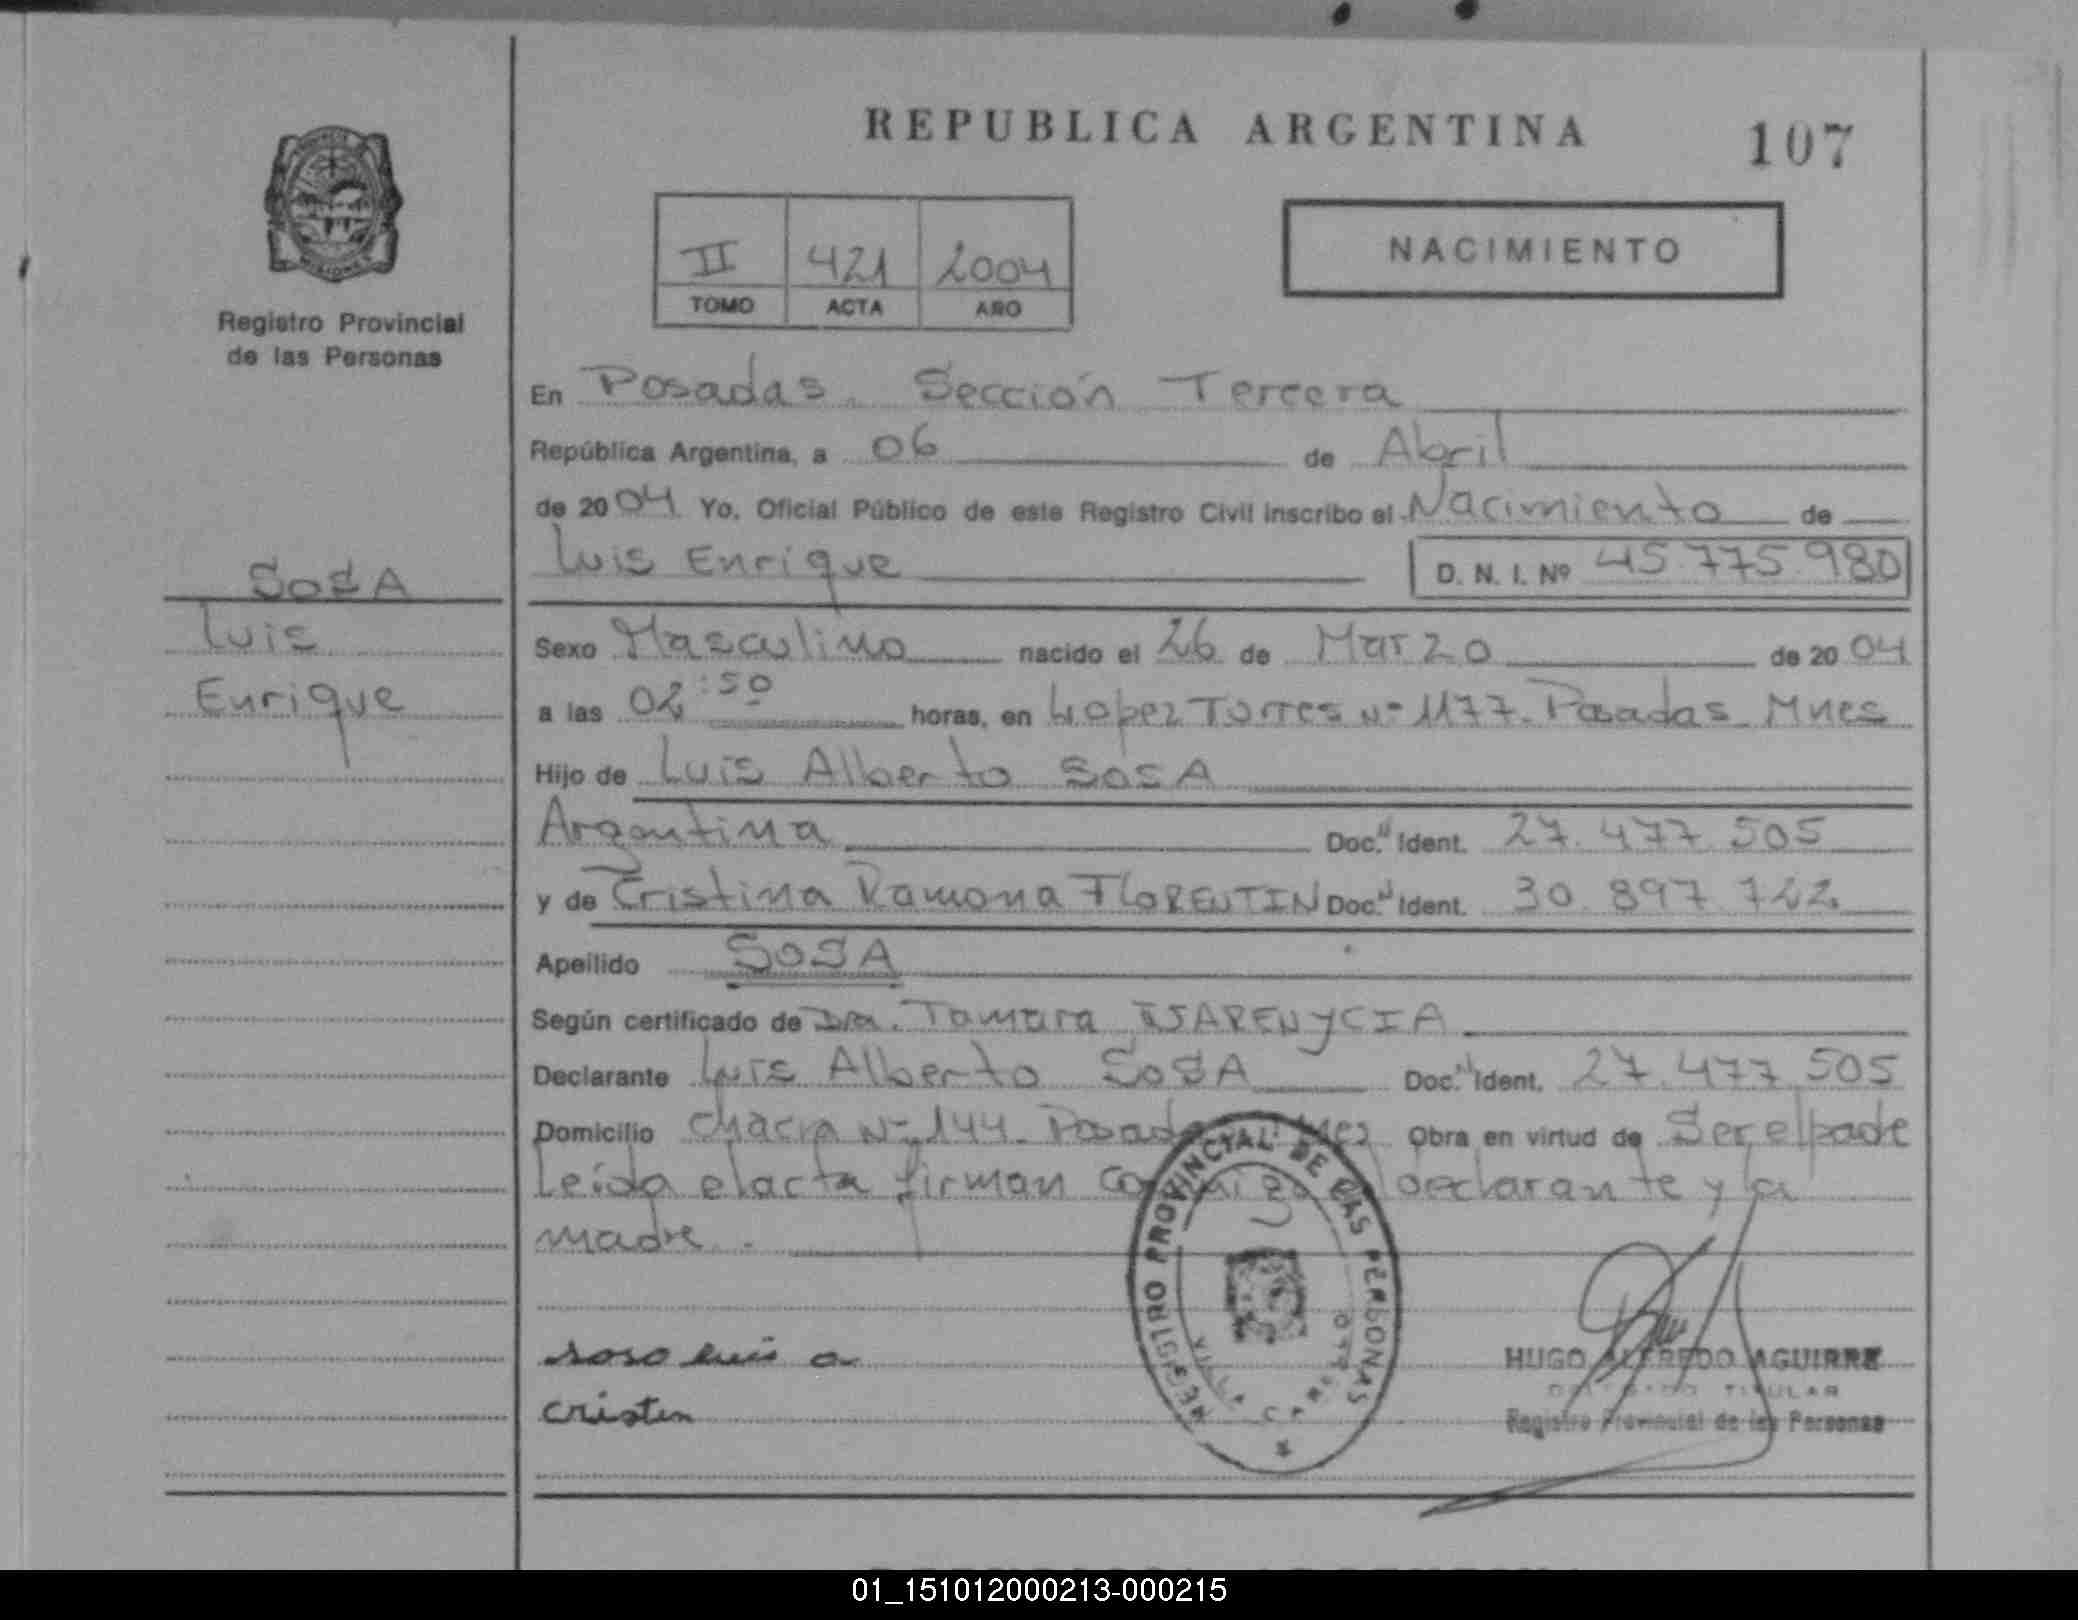 REPUBLICA ARGENTINA
107
MISIONES
Registro Provincial
de las Personas
II 421 2004
TOMO ACTA AÑO
NACIMIENTO
En Posadas. Sección Tercera
República Argentina, a 06 de Abril
de 2004 Yo, Oficial Público de este Registro Civil inscribo el Nacimiento de
Luis Enrique D. N. I. Nº 45.775.980
SOSA
Luis
Enrique
Sexo Masculino nacido el 26 de Marzo de 2004
a las 02:50 horas, en Lopez Torres Nº 1177. Posadas Mnes
Hijo de Luis Alberto SOSA
Argentina Doc. Ident. 27.477.505
y de Cristina Ramona FLORENTIN Doc. Ident. 30.897.722
Apellido SOSA
Según certificado de Dra. Tamara
Declarante Luis Alberto SOSA Doc. Ident. 27.477.505
Domicilio Chacra Nº 144. Posadas Mnes Obra en virtud de Ser el padre
Leida el acta firman conmigo declarante y la
madre.
soso luis a
cristin
REGISTRO PROVINCIAL DE LAS PERSONAS
VILLA CABELLO
HUGO ALFREDO AGUIRRE
DELEGADO TITULAR
Registro Provincial de las Personas
01_151012000213-000215